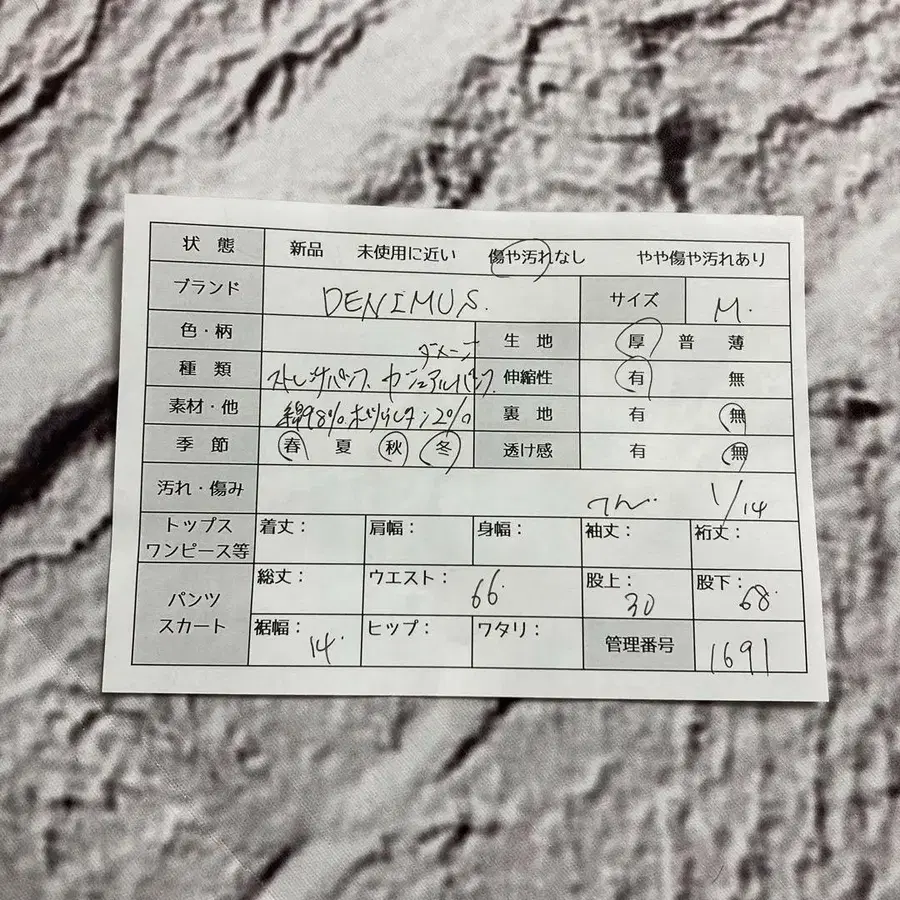 状 態 新品 未使用に近い 傷や汚れなし やや傷や汚れあり
ブランド DENIMUS. サイズ M.
色・柄 生 地 厚 普 薄
ダメージ
種 類 ストレッチパンツ、カジュアルパンツ 伸縮性 有 無
素材・他 綿98%.ポリウレタン2% 裏 地 有 無
季 節 春 夏 秋 冬 透け感 有 無
汚れ・傷み 1/14
トップス
ワンピース等 着丈: 肩幅: 身幅: 袖丈: 裄丈:
パンツ
スカート 総丈: ウエスト: 66. 股上: 30 股下: 68.
裾幅: 14. ヒップ: ワタリ: 管理番号 1691